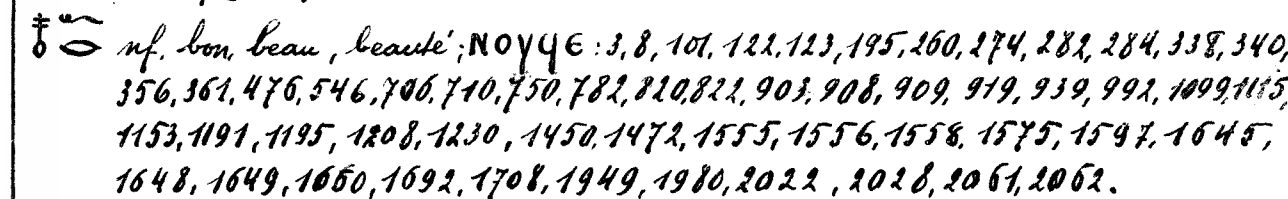 𓄤𓆑𓂋 nf. bon, beau, beauté; ⲛⲟⲩϥⲉ : 3, 8, 101, 122, 123, 195, 260, 274, 282, 284, 338, 340,
356, 361, 476, 546, 706, 710, 750, 782, 820, 822, 903, 908, 909, 919, 939, 992, 1099,
1153, 1191, 1195, 1208, 1230, 1450, 1472, 1555, 1556, 1558, 1575, 1597, 1645,
1648, 1649, 1660, 1692, 1708, 1949, 1980, 2022, 2028, 2061, 2062.